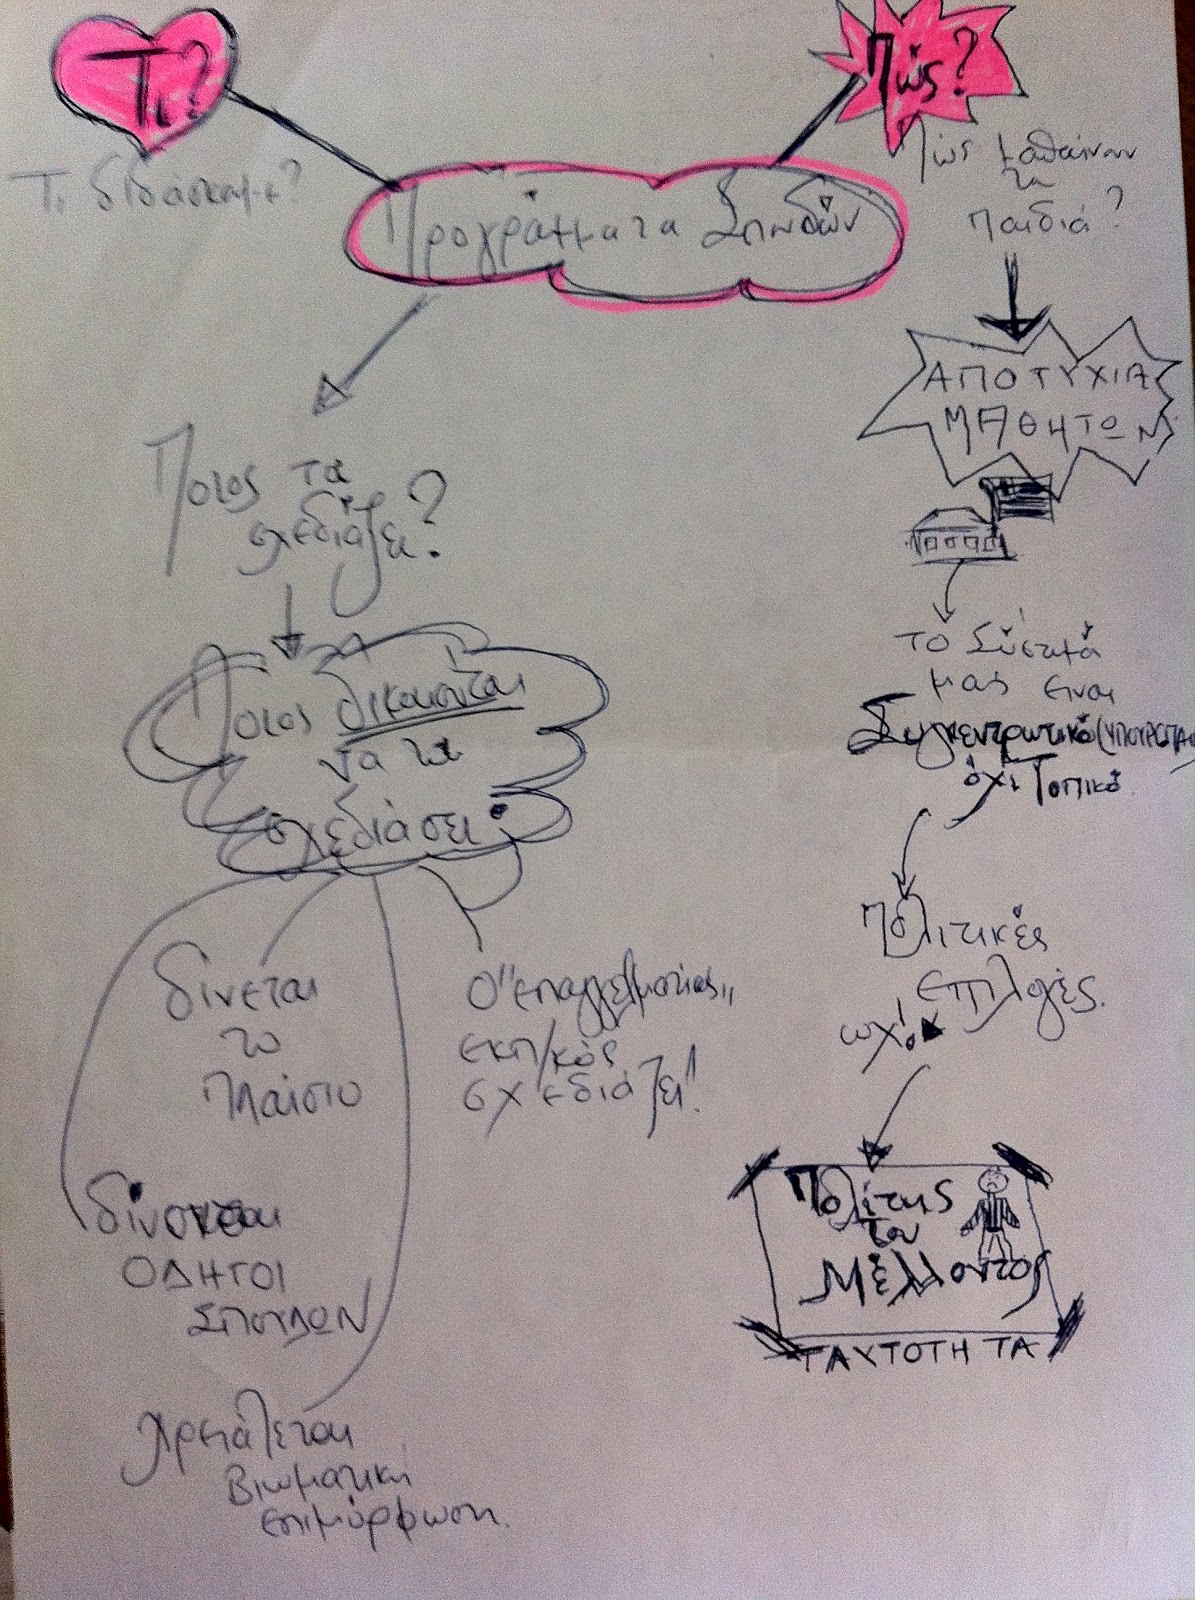 Τι?
Πώς?
Τι διδάσκουμε?
Πώς μαθαίνουν
τα
παιδιά?
Προγράμματα Σπουδών
ΑΠΟΤΥΧΙΑ
ΜΑΘΗΤΩΝ
Ποιος τα
σχεδιάζει?
το Σύστημά
μας είναι
Συγκεντρωτικό (ΥΠΟΥΡΓΕΙΑΚΟ
όχι Τοπικό.
Ποιος δικαιούται
να τα
σχεδιάσει
Πολιτικές
επιλογές.
δίνεται
το
πλαίσιο
Ο "επαγγελματίας"
εκπ/κός
σχεδιάζει!
Πολίτης
του
Μέλλοντος
ΤΑΥΤΟΤΗΤΑ
δίνονται
ΟΔΗΓΟΙ
ΣΠΟΥΔΩΝ
Χρειάζεται
Βιωματική
επιμόρφωση.